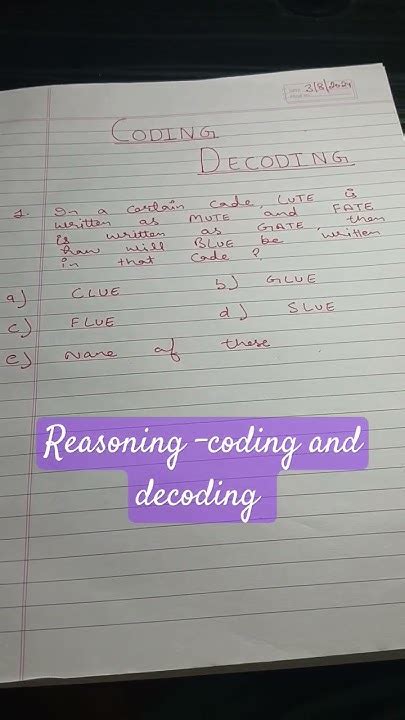 DATE 3/8/2024
CODING
DECODING
1. In a certain code, LUTE is
written as MUTE and FATE
is written as GATE, then
how will BLUE be written
in that code ?
a) CLUE b) GLUE
c) FLUE d) SLUE
e) None of these
Reasoning -coding and
decoding